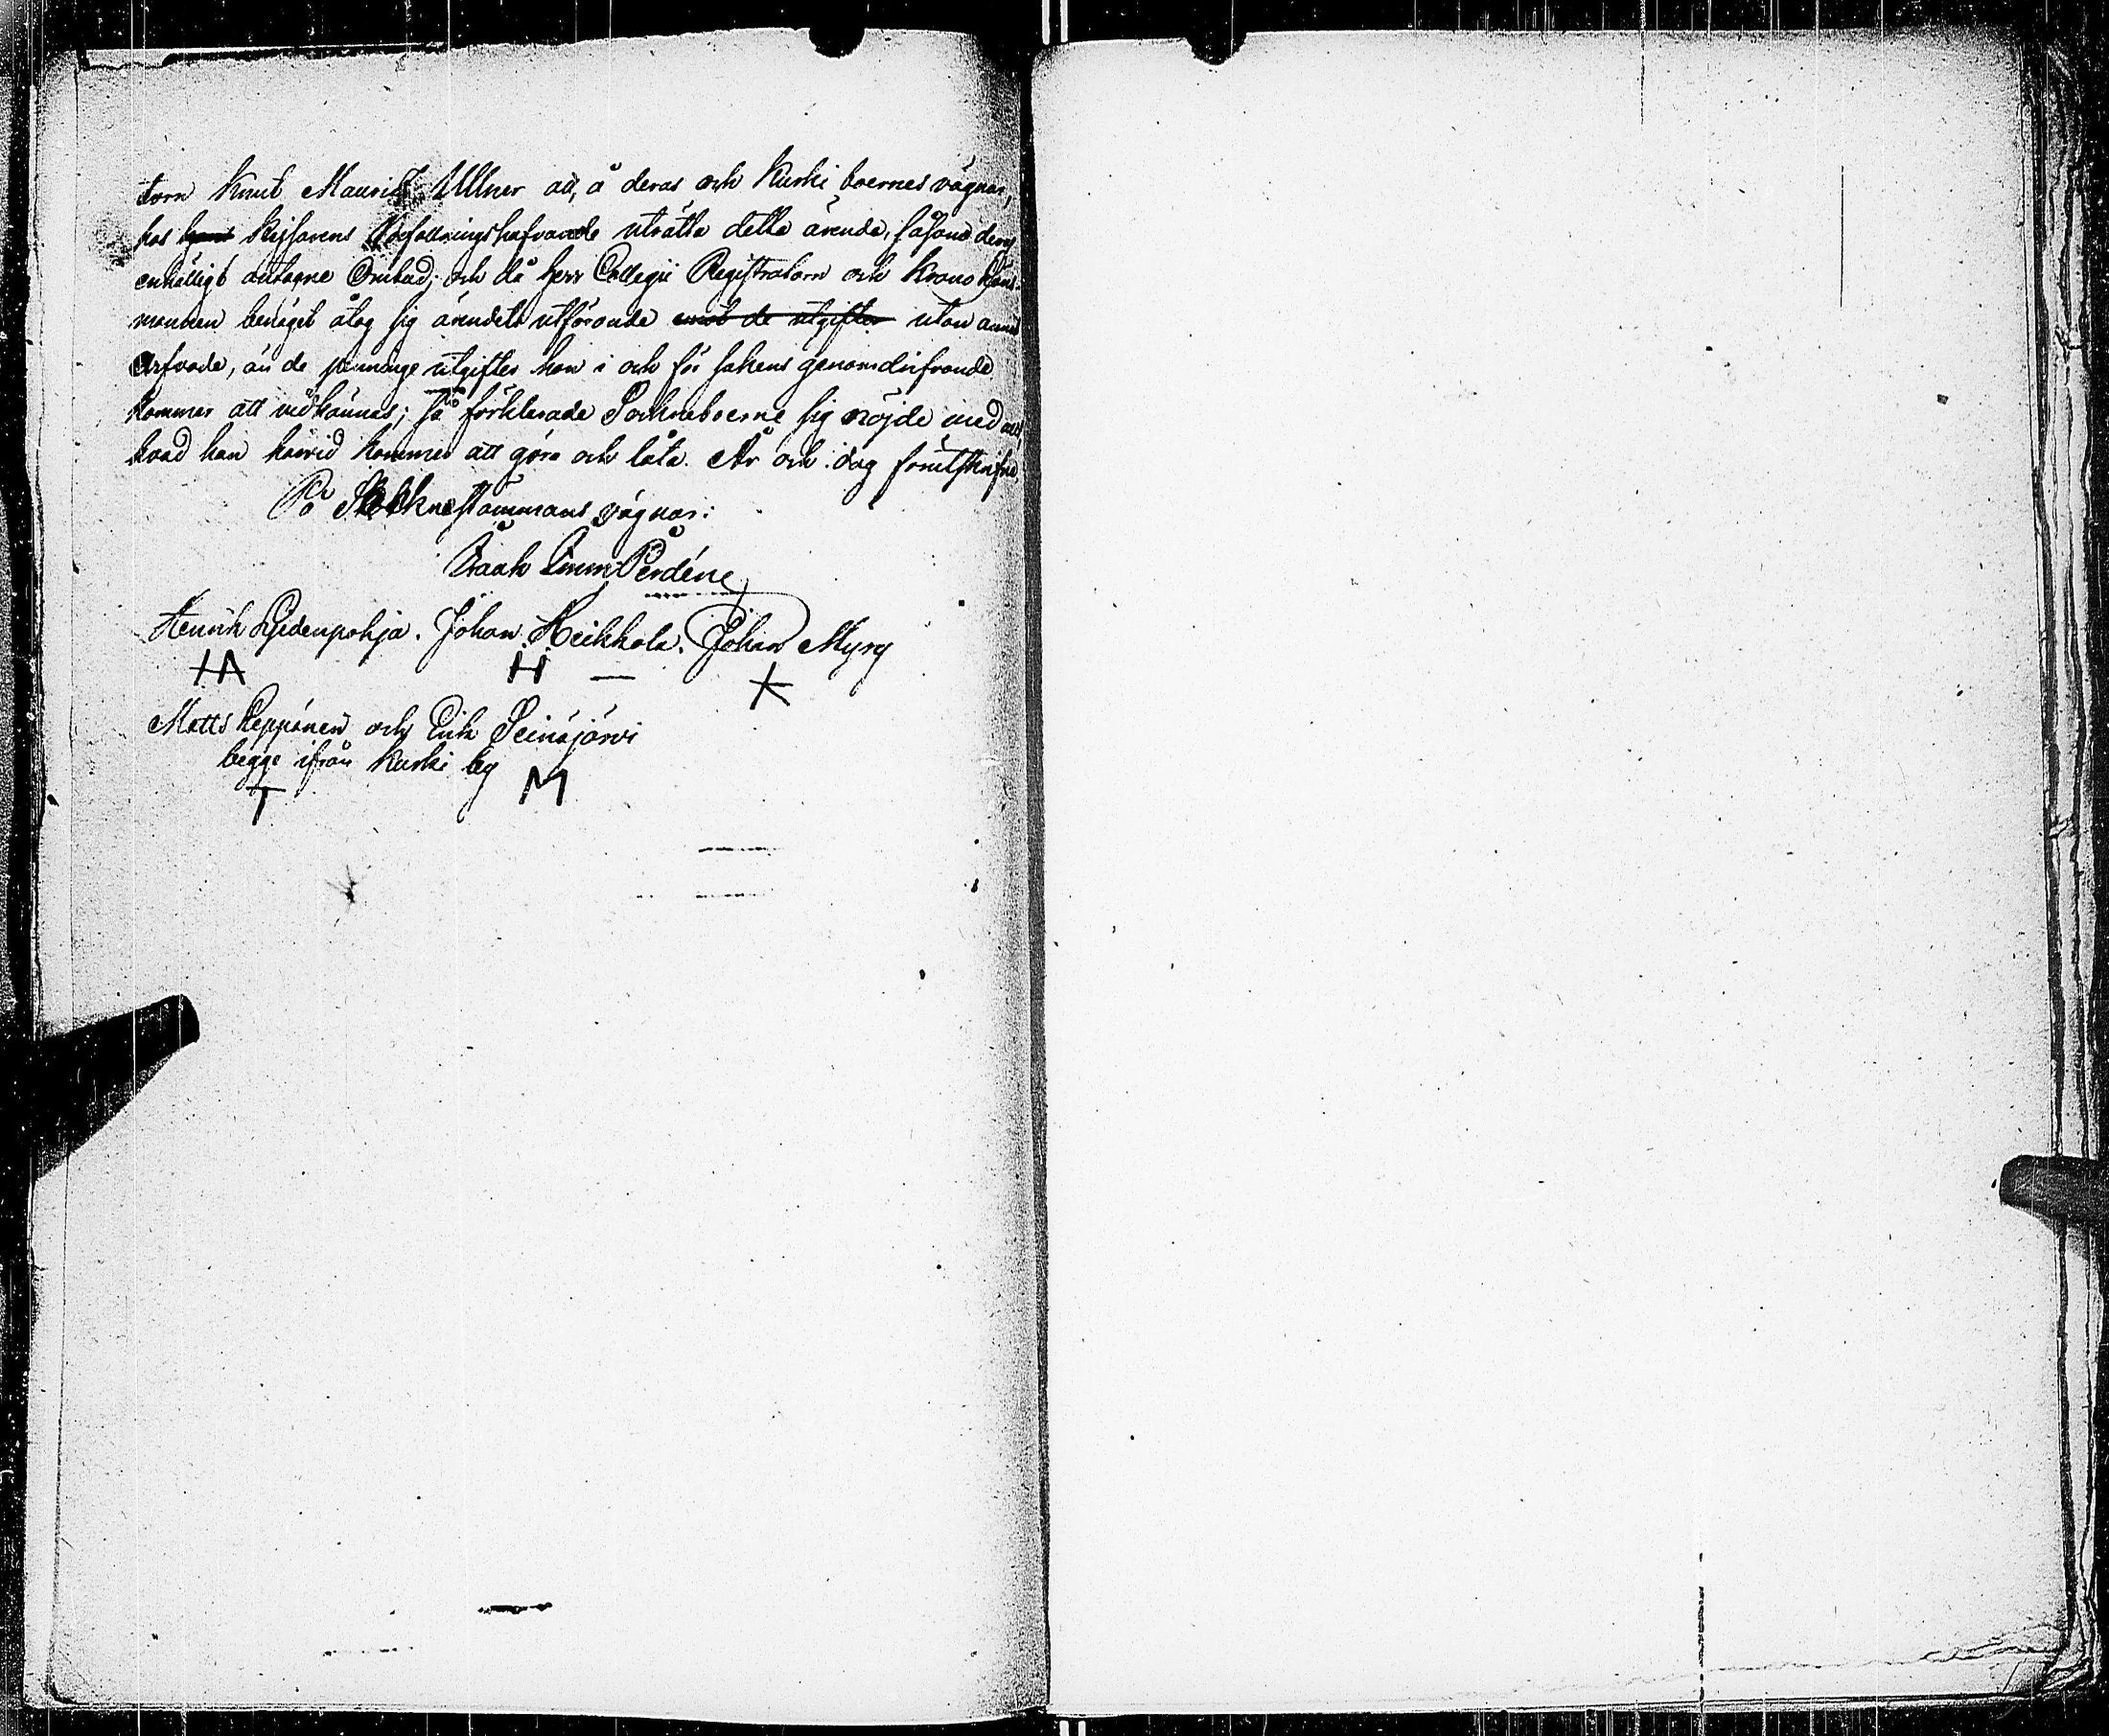 torn Knut Mauritz Ullner att, å deras och Kurki boernes vägnar,
hos Kejsarens Befallningshafvande uträtta detta ärende, såsom deras
enhälligt antagne Ombud; och då herr Collegii Registratorn och Krono Läns-
mannen benäget åtog sig ärendets utförande emot de utgifter utan annat
Arfvode, än de penninge utgifter han i och för sakens genomdrifvande
kommer att vidkännas; så förklarade Sockneboerne sig nöjde med allt,
hvad han härvid kommer att göra och låta. År och dag förutskrifne
På Socknestämmans vägnar:
Isaak Perdéne
Henrik Lehdenpohja. Johan Heikkola. Johan Myry
HA H X
Matts Leppänen och Erik Seinäjärvi
begge ifrån Kurki by
T M